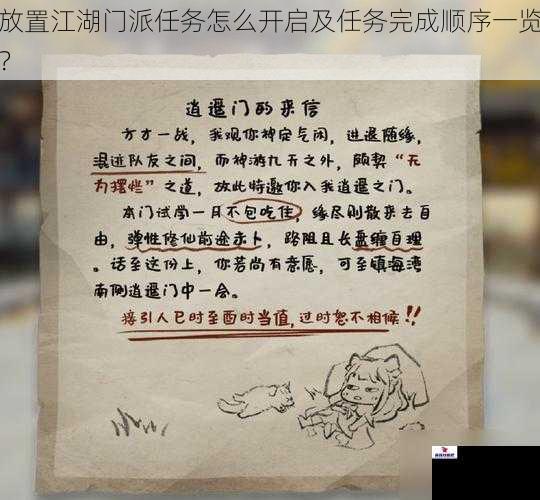 放置江湖门派任务怎么开启及任务完成顺序一览
?
逍遥门的来信
方才一战，我观你神定气闲，进退随缘，
混迹队友之间，而神游九天之外，颇契“无
为摆烂”之道，故此特邀你入我逍遥之门。
本门试学一月不包吃住，缘尽则散来去自
由，弹性修仙前途未卜，路阻且长盘缠自理
。话至这份上，你若尚有意愿，可至镇海湾
南侧逍遥门中一会。
接引人巳时至酉时当值，过时恕不相候!!